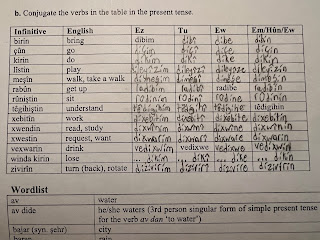 b. Conjugate the verbs in the table in the present tense.
Infinitive English Ez Tu Ew Em/Hûn/Ew
birin bring dibim dibî dibe dibin
çûn go diçim diçî diçe diçin
kirin do dikim dikî dike dikin
lîstin play dileyizî dileyize dileyizin
meşîn walk, take a walk dimeşim dimeşî dimeşe dimeşin
rabûn get up radibim radibî radibe radibin
rûniştin sit rodinim rodinî rodine rodinin
têgihiştin understand têdigihin
xebitîn work dixebitim dixebitî dixebite dixebitin
xwendin read, study dixwînim dixwînî dixwîne dixwînin
xwestin request, want dixwazim dixwazî dixwaze dixwazin
vexwarin drink vedixwim vedixwe vedixwin
winda kirin lose ... dikim ... dikî ... dike ... dikin
zivirîn turn (back), rotate dizivirim dizivirî dizivire dizivirin
Wordlist
av water
av dide he/she waters (3rd person singular form of simple present tense
for the verb av dan ‘to water’)
bajar (syn. şehr) city
rain